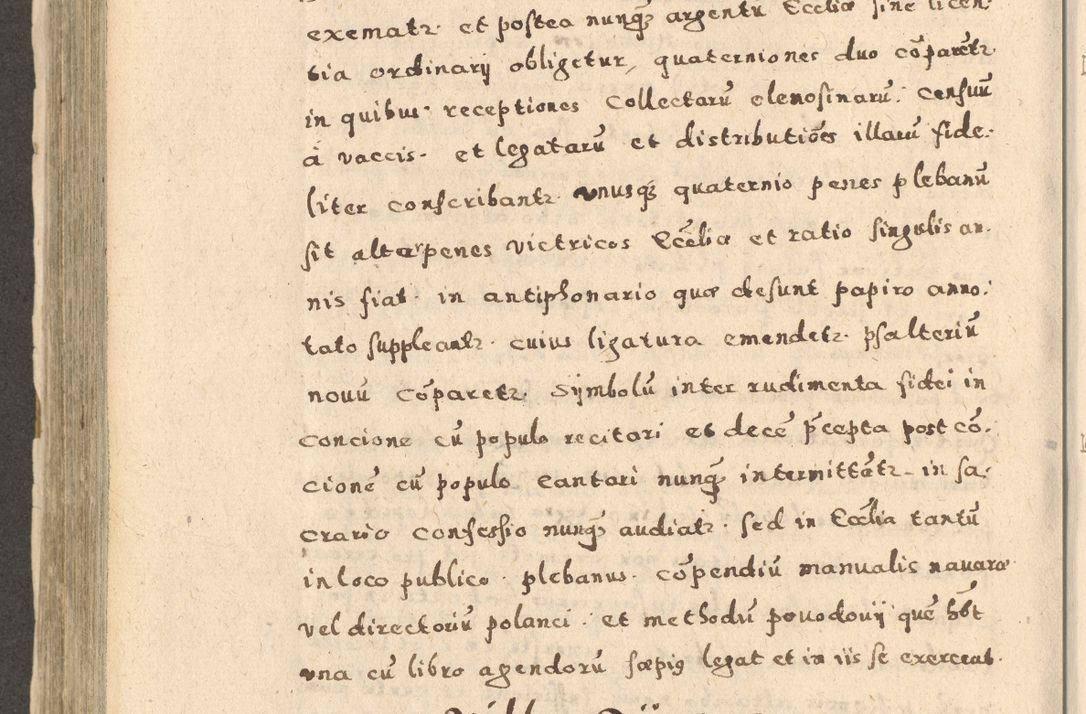 exematr. et postea nunq̃ argentũ Eccliæ sine licen-
tia ordinarij obligetur, quaterniones duo cõparẽtr
in quibus receptiones Collectarũ elemosinarũ. censuũ
á vaccis. et legatarũ et distributiões illarũ fide-
liter conscribantr. vnusq̃ quaternio penes plebanũ
sit alter penes victricos Ecc̃liæ et ratio singulis an-
nis fiat. in antiphonario quæ desunt papiro anno-
tato suppleantr. cuius ligatura emendetr. psalteriũ
nouũ cõparetr. Symbolũ inter rudimenta fidei in
concione cũ populo recitari et decẽ p̃cepta post cõ-
cionẽ cũ populo cantari nunq̃ intermittãtr. in sa-
crario confessio nunq̃ audiatr. sed in Eccl̃ia tantũ
in loco publico. plebanus. cõpendiũ manualis nauaræ
vel directoriũ polanci. et methodũ pouodouij quẽ hẽt
vna cũ libro agendorũ sæpius legat et in iis se exerceat.